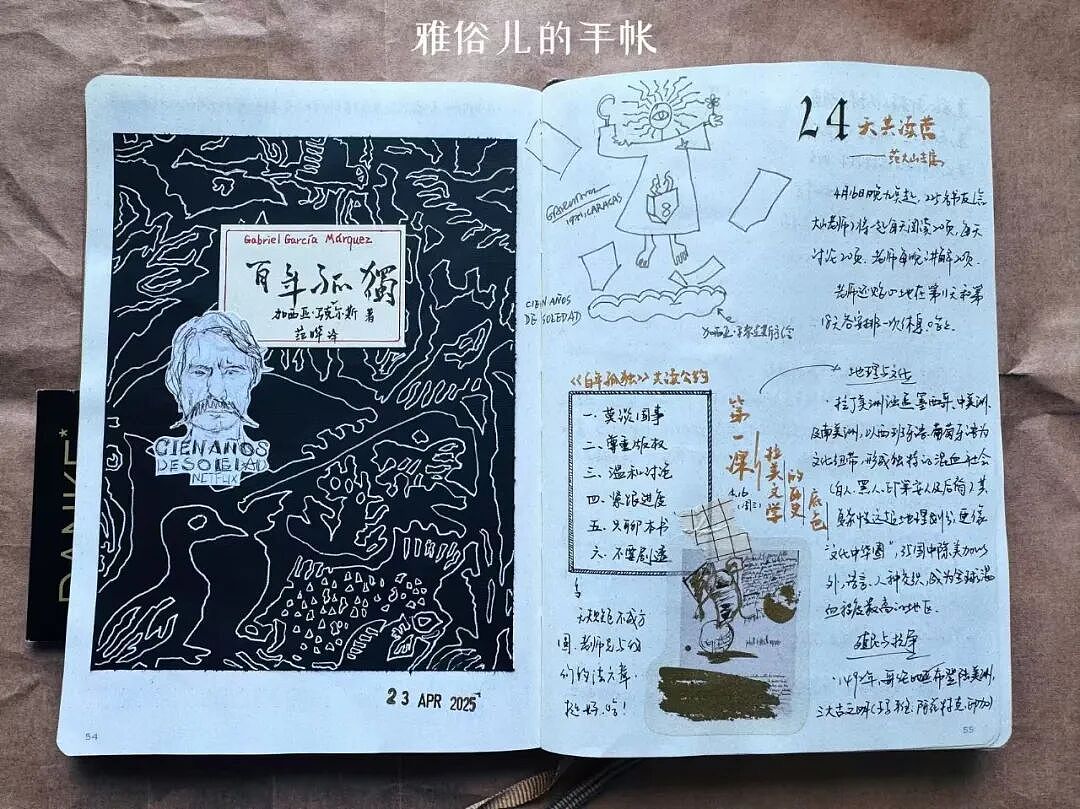 雅俗儿的手帐
DANKE*
Gabriel García Márquez
百年孤獨
加西亚·马尔克斯 著
范晔 译
CIEN AÑOS
DE SOLEDAD
NETFLIX
23 APR 2025
54
24
天共读营
1971, CARACAS
CIEN AÑOS
DE SOLEDAD
4月16日晚九点起，
大山老师）将一起每天阅读20页，每天
讨论20页，老师每晚讲解20页。
老师还贴心地在第11天和第
18天各安排一次休息。哈哈
《百年孤独》共读公约
一、莫谈国事
二、尊重版权
三、温和讨论
四、紧跟进度
五、只聊本书
六、不要剧透
无规矩不成方
圆，老师
们约法六章，
挺好。哈！
第一课
4.16
(周三)
拉美文学
的历史
底色
地理与文化
·拉丁美洲涵盖墨西哥、中美洲
及南美洲，以西班牙语、葡萄牙语为
文化纽带，形成独特的混血社会
(白人、黑人、印第安人及后裔)其
复杂性远超地理划分，更像
"文化中华圈"，35国中除美加以
外，语言、人种交织，成为全球混
血程度最高的地区。
殖民与抗争
·1492年，哥伦布登陆美洲，
三大古文明(玛雅、阿兹特克、印加)
55